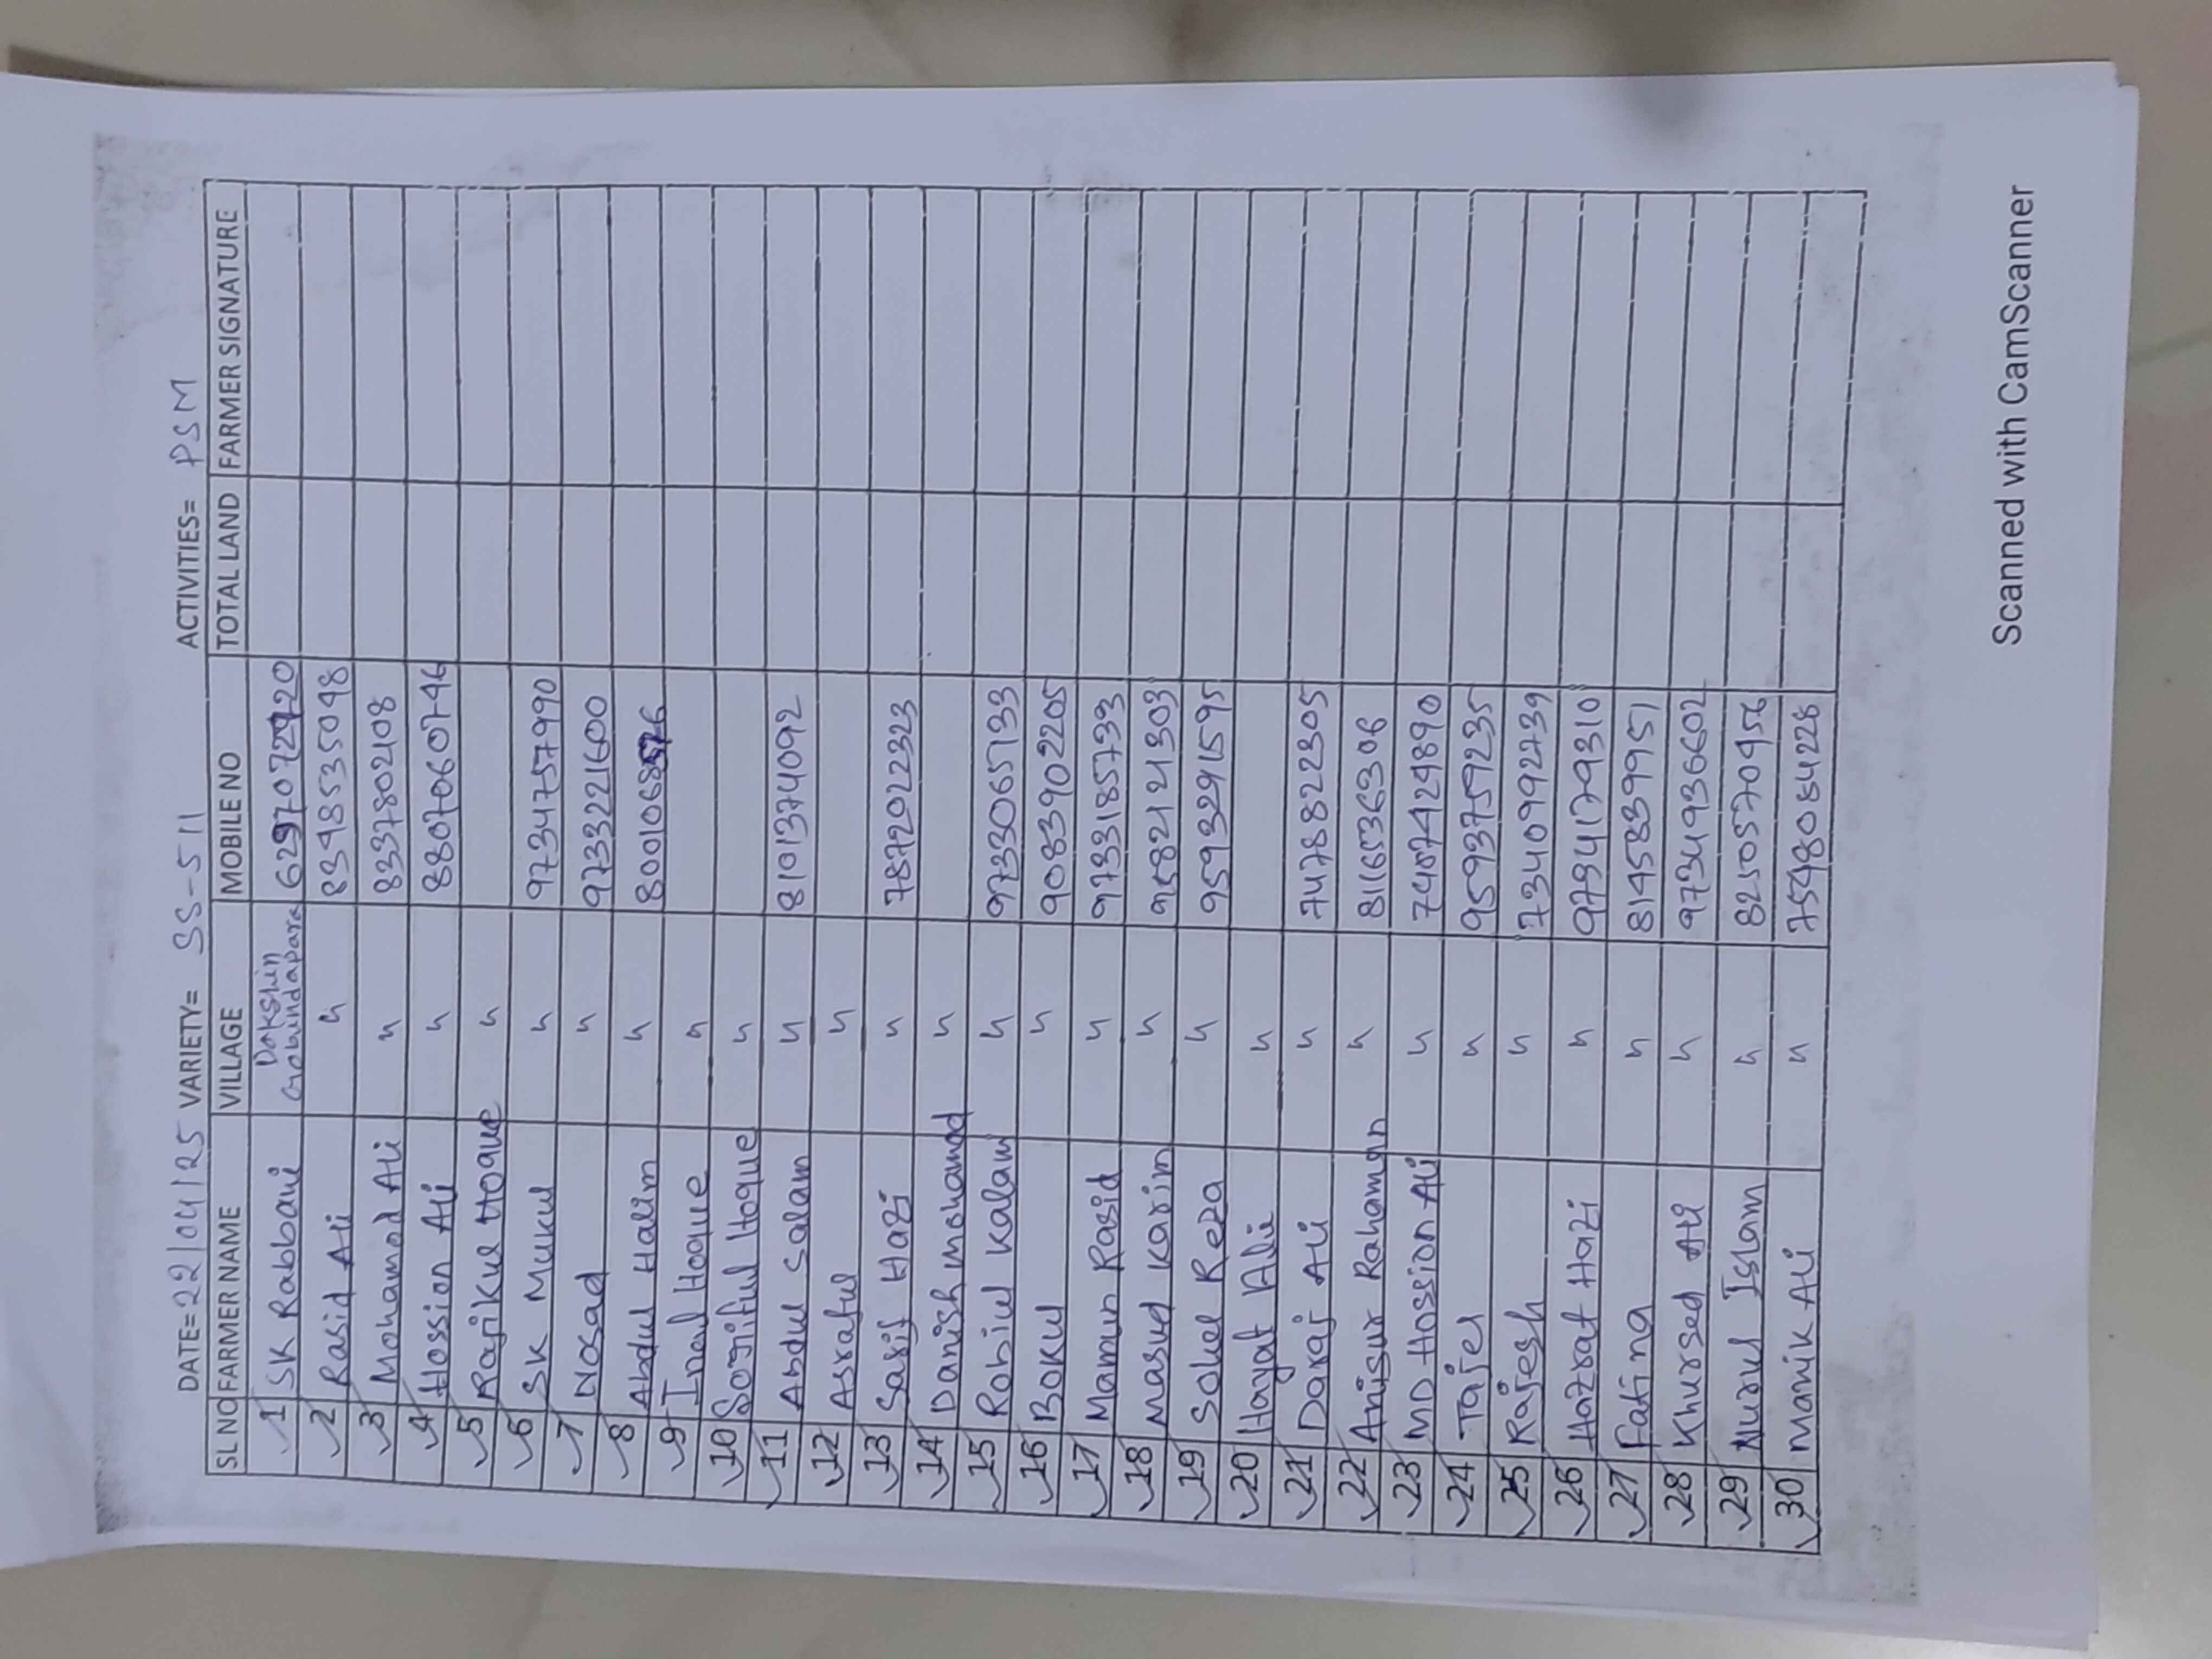 DATE=22/04/25 VARIETY= SS-511 ACTIVITIES= PSM
SL NO FARMER NAME VILLAGE MOBILE NO TOTAL LAND FARMER SIGNATURE
1 SK Rabbani Dakshin Gobindapara 6297072920
2 Rasid Ali " 8348535048
3 Mohamod Ali " 8337802408
4 Hossion Ali " 88070660746
5 Rajikul Hoque "
6 SK Mukul " 9734757990
7 Nosad " 9733221600
8 Abdul Halim " 8001068576
9 Inaul Hoque "
10 Sofiful Hoque "
11 Abdul Salam " 8101374092
12 Asraful "
13 Sarif Hazi " 7872022323
14 Danish Mohamod "
15 Robiul Kalam " 9733065133
16 Bokul " 9083902205
17 Mamun Rasid " 9733185733
18 Masud Karim " 9582121303
19 Sohel Reza " 9593291595
20 Hayat Ali "
21 Daraj Ali " 7478822305
22 Anisur Rahaman " 8116536306
23 MD Hossion Ali " 7407429890
24 Tajel " 9593759235
25 Rajesh " 7340992739
26 Hazrat Hazi " 9734179310
27 Fatima " 8145839951
28 Khursed Ali " 9734936602
29 Nurul Islam " 8210570956
30 Manik Ali " 7548084228
Scanned with CamScanner